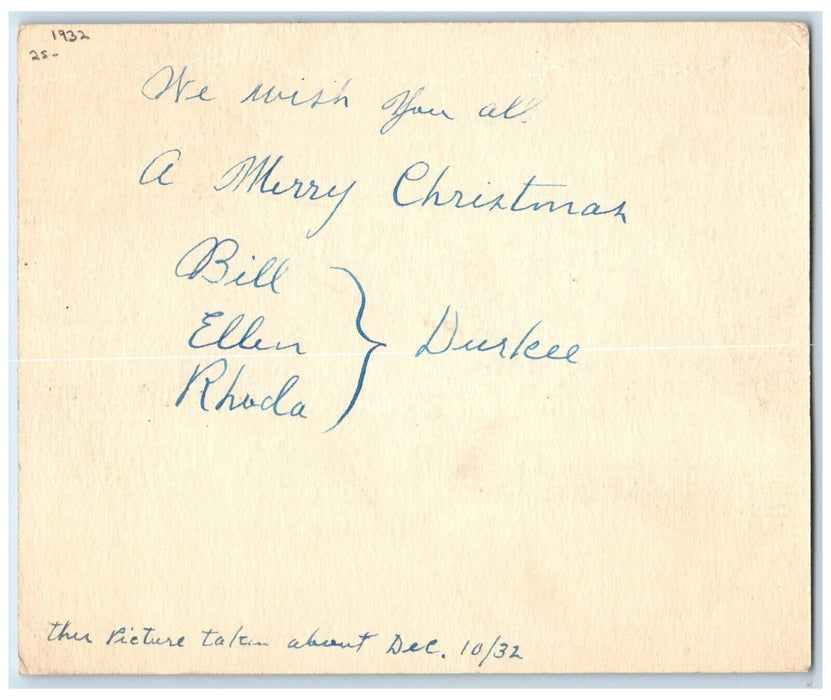 1932
25-
We wish You all.
A Merry Christmas
Bill
Ellen } Durkee
Rhoda
this Picture taken about Dec. 10/32